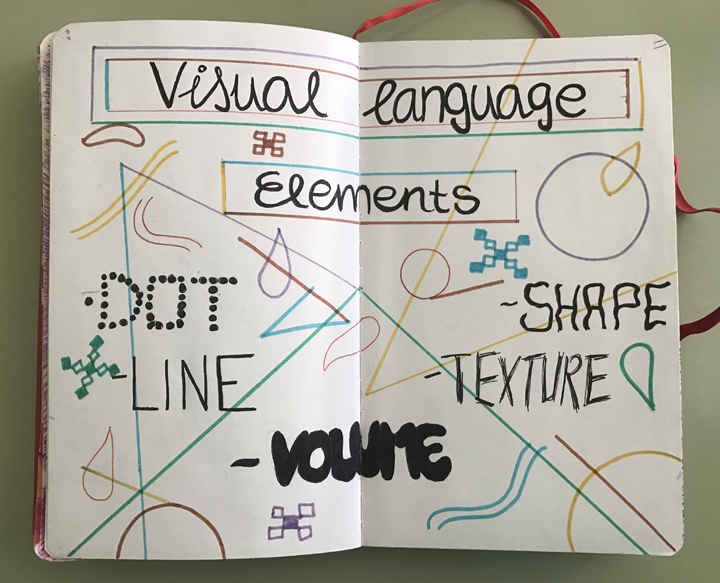 Visual language
Elements
·DOT
-SHAPE
-LINE
-TEXTURE
-VOLUME